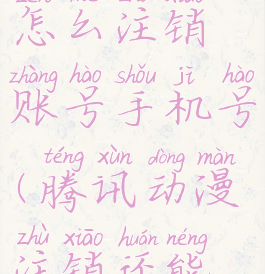 怎么注销
zhàng hào shǒu jī hào
账号手机号
téng xùn dòng màn
(腾讯动漫
zhù xiāo huán néng
注销还能